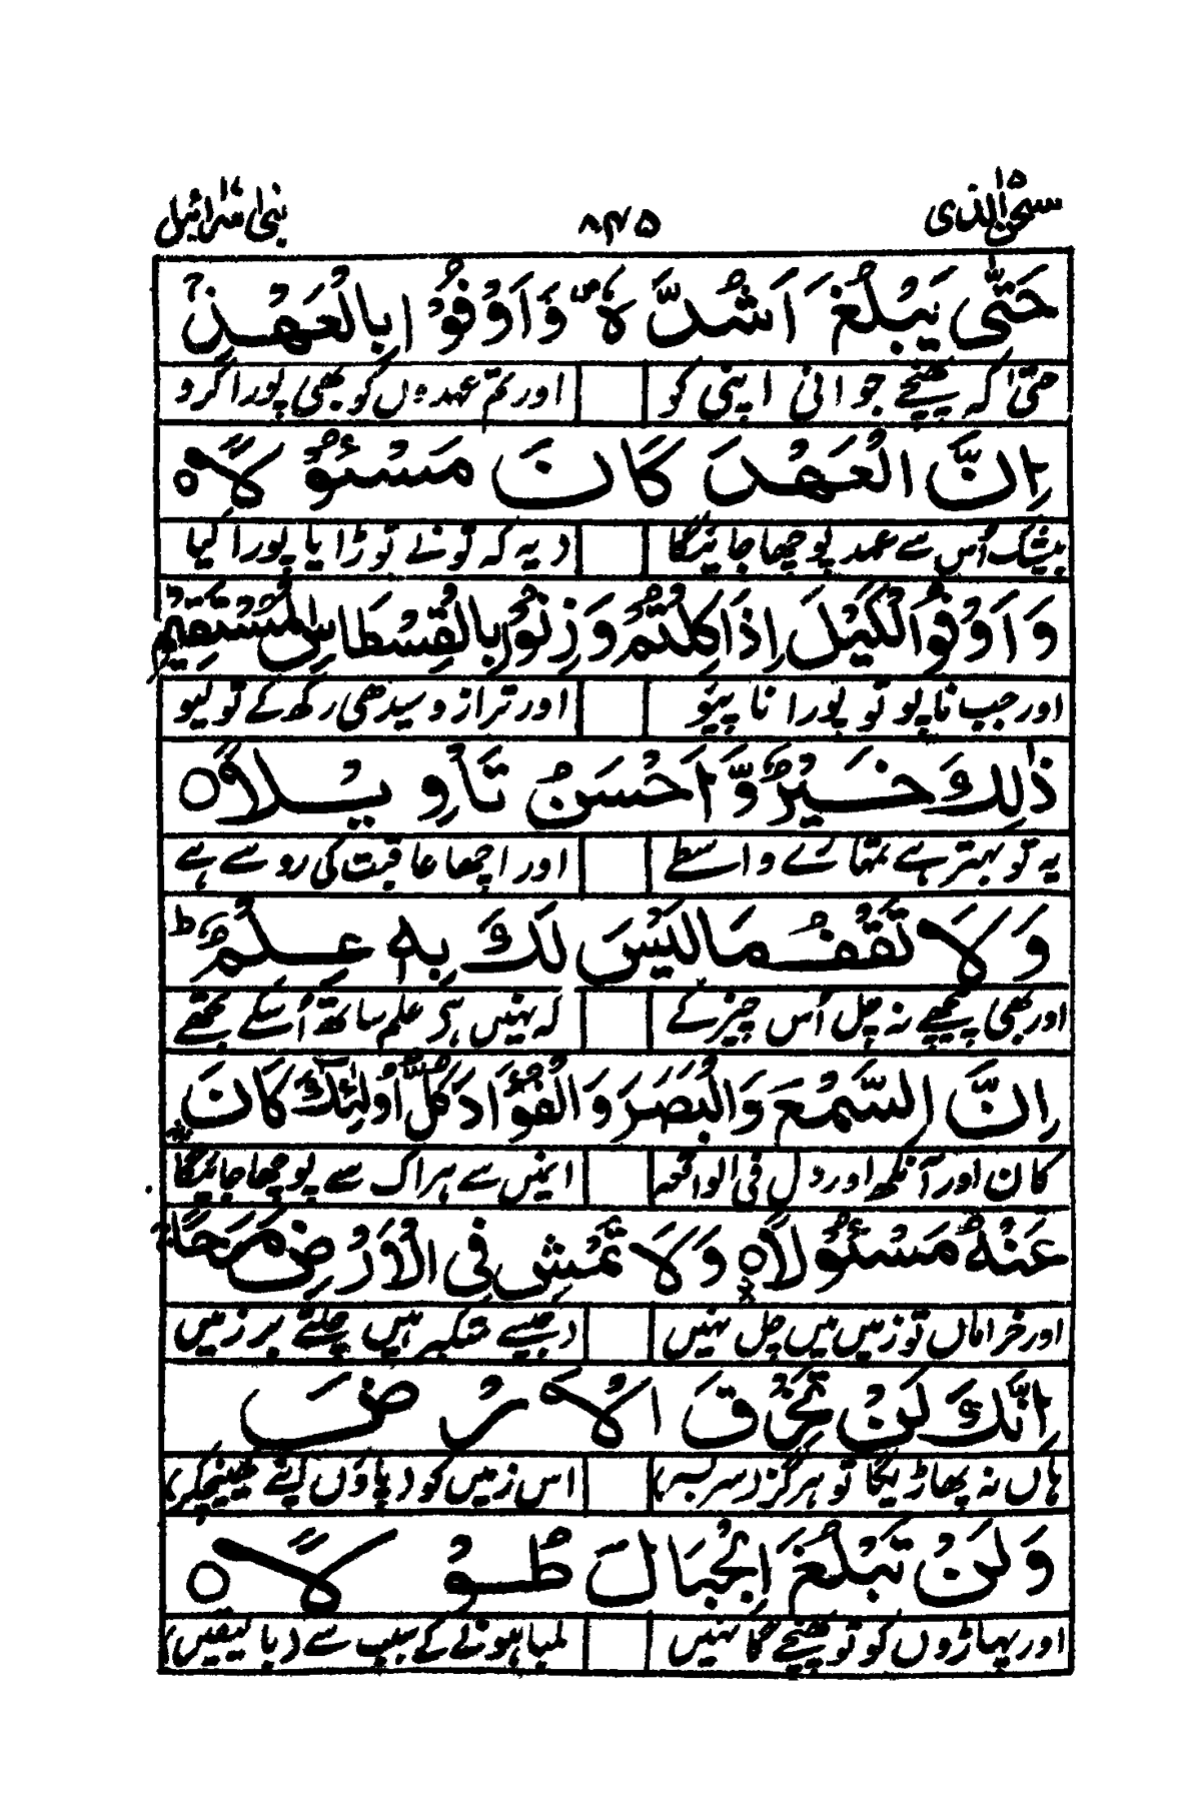 سبحن الذی ۱۵ ۸۴۵ بنی اسرائیل ۱۷
حَتّٰی یَبْلُغَ اَشُدَّهٗ ۪ وَاَوْفُوْا بِالْعَهْدِ ۚ
حتیٰ کہ پہنچے جوانی اپنی کو اور تم عہدوں کو بھی پورا کرو
اِنَّ الْعَهْدَ كَانَ مَسْـُٔوْلًا ○
بیشک اُس سے عہد پوچھا جائیگا (یہ کہ تونے توڑا یا پورا کیا
وَاَوْفُوا الْكَیْلَ اِذَا كِلْتُمْ وَزِنُوْا بِالْقِسْطَاسِ الْمُسْتَقِیْمِ
اور جب ناپو تو پورا ناپیو اور ترازو سیدھی رکھ کے تولیو
ذٰلِكَ خَیْرٌ وَّاَحْسَنُ تَاْوِیْلًا ○
یہ تو بہتر ہے تمہارے واسطے اور اچھا عاقبت کی رو سے ہے
وَلَا تَقْفُ مَا لَیْسَ لَكَ بِهٖ عِلْمٌ ؕ
اور بھی پیچھے نہ چل اُس چیز کے کہ نہیں ہے علم ساتھ اُسکے تجھے
اِنَّ السَّمْعَ وَالْبَصَرَ وَالْفُؤَادَ كُلُّ اُولٰٓئِكَ كَانَ
کان اور آنکھ اور دل فی الواقعہ انمیں سے ہر اک سے پوچھا جائیگا
عَنْهُ مَسْـُٔوْلًا ○ وَلَا تَمْشِ فِی الْاَرْضِ مَرَحًا ۚ
اور خراماں تو زمیں میں چل نہیں (جیسے متکبر ہیں چلتے بر زمیں
اِنَّكَ لَنْ تَخْرِقَ الْاَرْضَ
ہاں نہ پھاڑیگا تو ہرگز (سربسر) اس زمیں کو (پاؤں اپنے کھینچکر)
وَلَنْ تَبْلُغَ الْجِبَالَ طُوْلًا ○
اور پہاڑوں کو تو پہنچے گا نہیں لمبا ہونے کے سبب سے (با لیقیں)